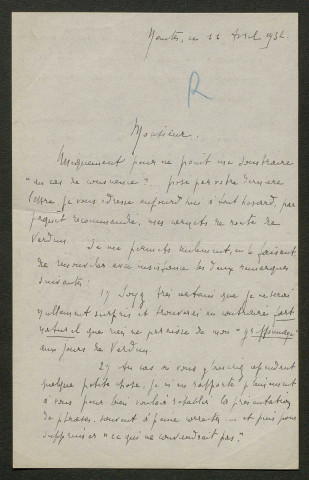 Nantes, ce 11 Avril 1932.
R
Monsieur.
Uniquement pour ne point me soustraire
"au cas de conscience" posé par votre dernière
lettre je vous adresse aujourd'hui à tout hasard, par
paquet recommandé, mes carnets de route de
Verdun.
Je me permets seulement, en le faisant
de renouveler avec insistance les deux remarques
suivantes:
1) Soyez certain que je ne serai
nullement surpris et trouverai au contraire fort
naturel que rien ne permette de mon
aux jours de Verdun.
2) Au cas où vous y cependant
quelque petite chose, je m'en rapporte pleinement
à vous pour bien vouloir rétablir la présentation
de phrases souvent à peine correctes — et puis pour
supprimer "ce qui ne conviendrait pas".